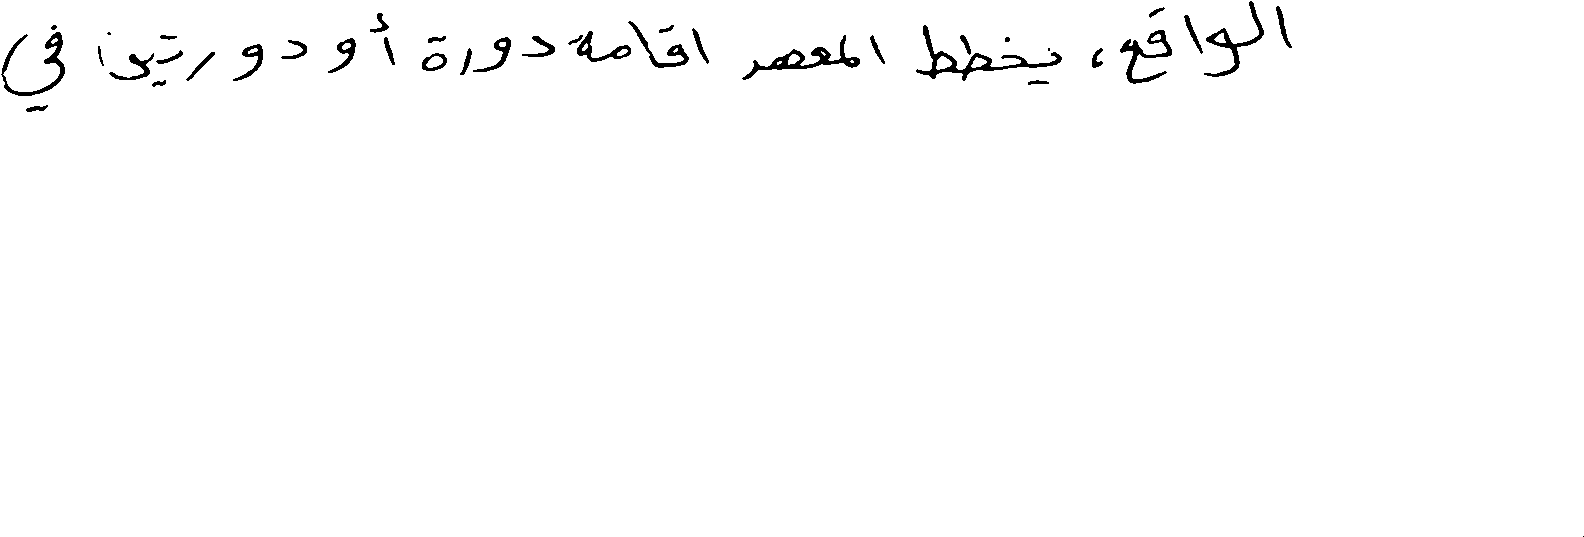 الواقع، يخطط المعهد اقامة دورة أو دورتين في